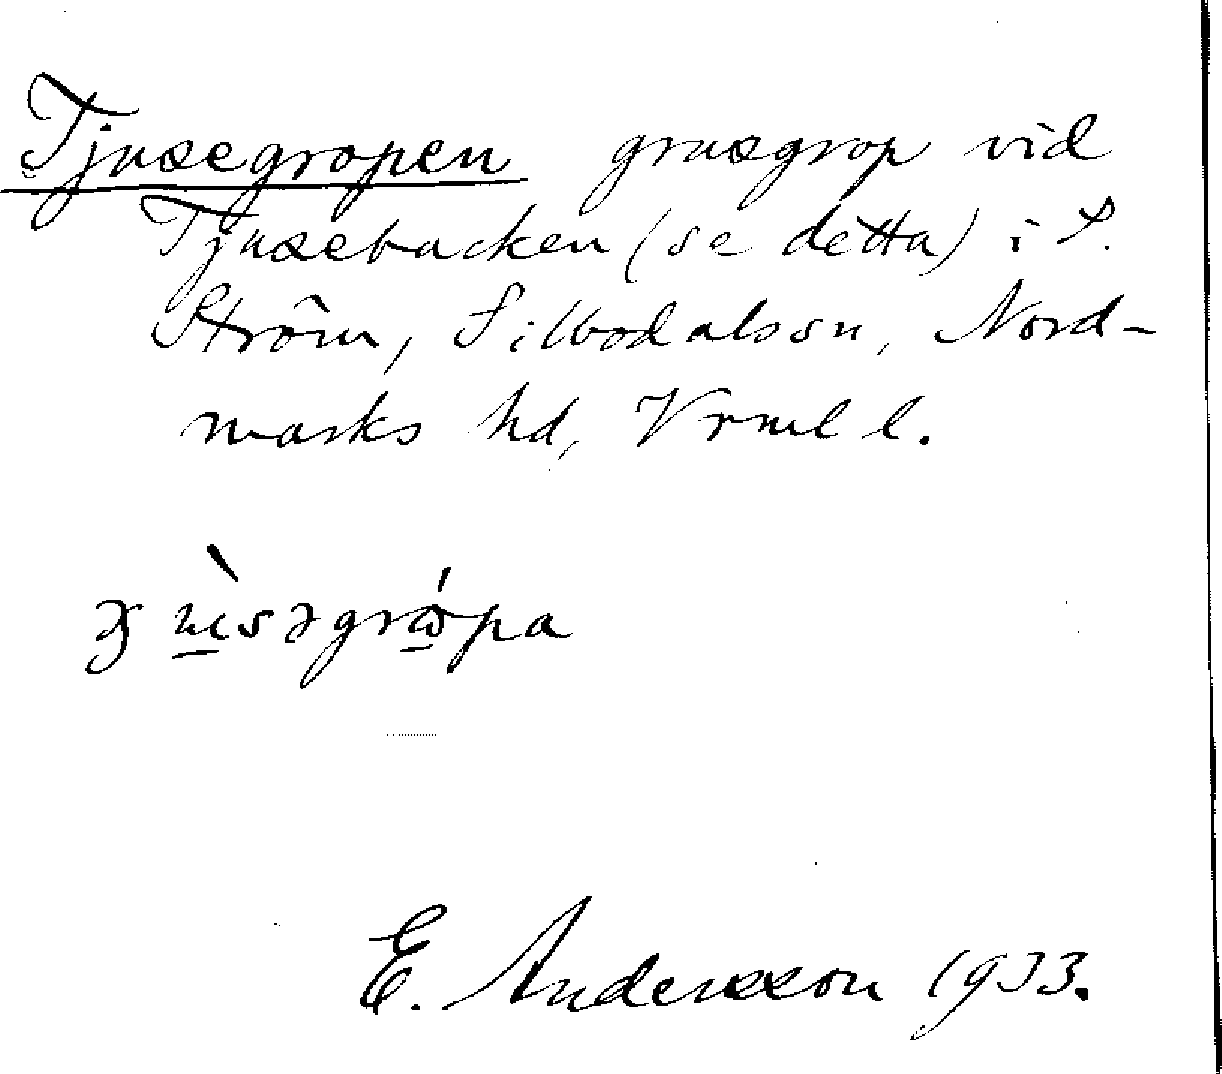 Tjusegropen grusgrop vid
Tjusebacken (se detta) i S.
Ström, Silbodalssn, Nord-
marks hd, Vrml l.
E. Andersson 1933.